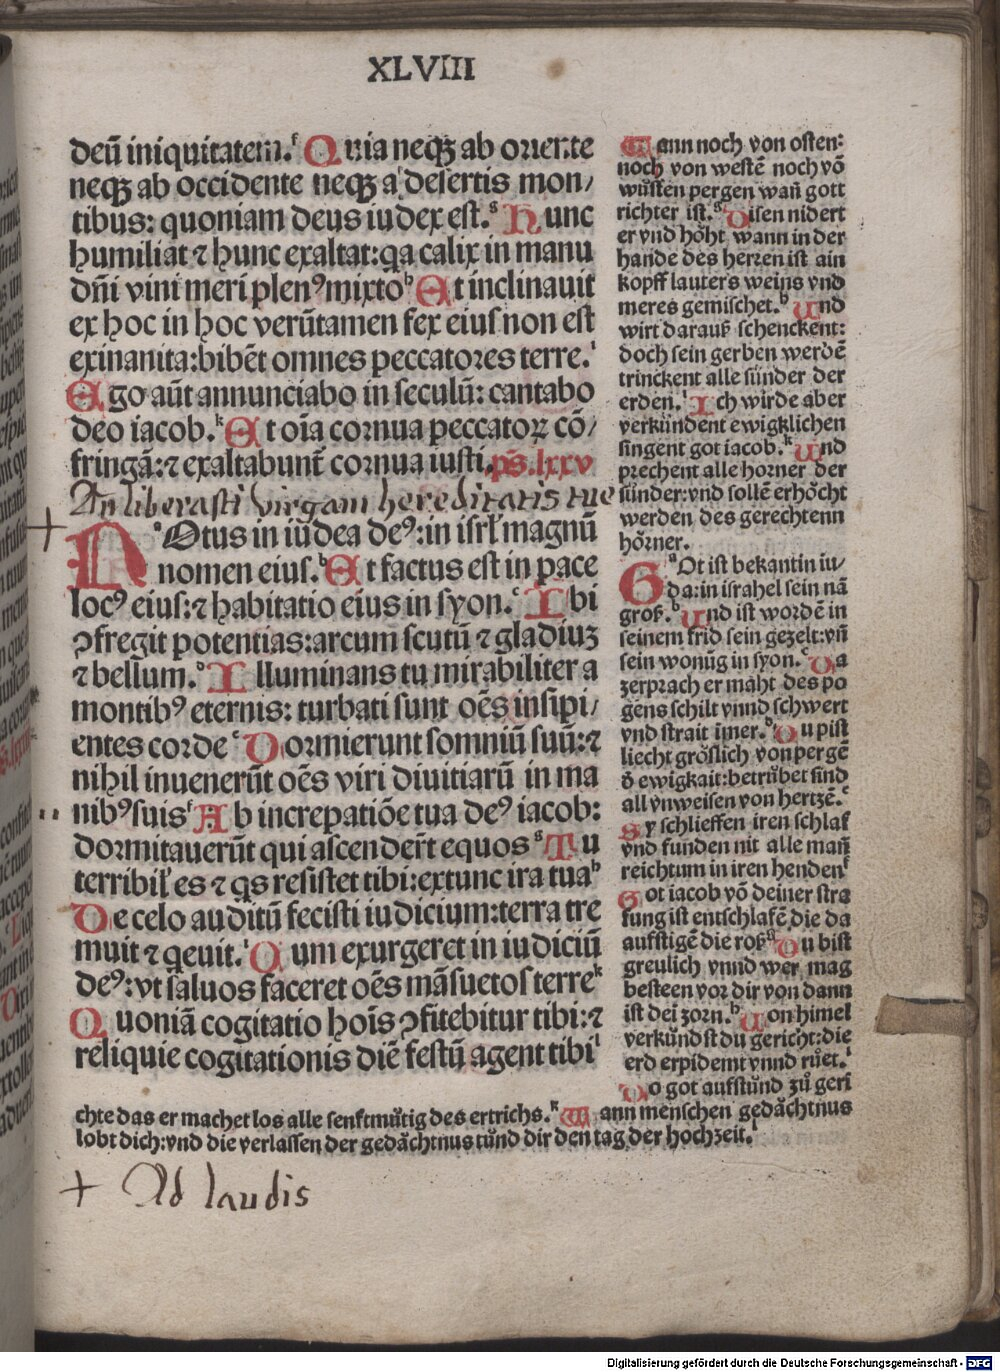 XLVIII
deū iniquitatem.f Quia neqȝ ab oriente
neqȝ ab occidente neqȝ a desertis mon/
tibus: quoniam deus iudex est.g Hunc
humiliat ⁊ hunc exaltat: qa calix in manu
dñi vini meri plenꝰ mixto h Et inclinauit
ex hoc in hoc verūtamen fex eius non est
exinanita: bibēt omnes peccatores terre.i
Ego aūt annunciabo in seculū: cantabo
deo iacob.k Et oīa cornua peccatoꝝ cō/
fringā: ⁊ exaltabunt cornua iusti. ps. lxxv
An liberasti virgam hereditatis tue
+ Notus in iudea deꝰ: in isrl magnū
nomen eius.b Et factus est in pace
locꝰ eius: ⁊ habitatio eius in syon.c Ibi
ꝯfregit potentias: arcum scutū ⁊ gladiuȝ
⁊ bellum.d Illuminans tu mirabiliter a
montibꝰ eternis: turbati sunt oēs insipi/
entes corde e Dormierunt somniū suū: ⁊
nihil inuenerūt oēs viri diuitiarū in ma
nibꝰ suis f Ab increpatiōe tua deꝰ iacob:
dormitauerūt qui ascendert equos g Tu
terribil es ⁊ qs resistet tibi: extunc ira tua h
De celo auditū fecisti iudicium: terra tre
muit ⁊ qeuit.i Qum exurgeret in iudiciū
deꝰ: vt saluos faceret oēs māsuetos terre k
Quoniā cogitatio hoīs ꝯfitebitur tibi: ⁊
reliquie cogitationis diē festū agent tibi l
Wann noch von osten:
noch von westē noch vō
wüsten pergen wañ gott
richter ist.g Disen nidert
er vnd höht wann in der
hande des herren ist ain
kopff lauters weins vnd
meres gemischet.h Und
wirt darauß schenckent:
doch sein gerben werdē
trinckent alle sünder der
erden.i Ich wirde aber
verkündent ewigklichen
singent got iacob.k Und
prechent alle hörner der
sünder: vnd sollē erhöcht
werden des gerechtenn
hörner.
Got ist bekantin iu/
da: in israhel sein nā
groß.b Und ist wordē in
seinem frid sein gezelt: vñ
sein wonūg in syon.c Da
zerprach er maht des po
gens schilt vnnd schwert
vnd strait im̄er.d Du pist
liecht größlich von pergē
d̄ ewigkait: betrübet sind
all vnweisen von hertzē.e
Sy schlieffen iren schlaf
vnd funden nit alle mañ
reichtum in iren henden f
Got iacob vō deiner stra
fung ist entschlafē die da
aufstigē die roß g Du bist
greulich vnnd wer mag
besteen vor dir von dann
ist dei zorn.h Uon himel
verkündst du gericht: die
erd erpidemt vnnd růet.i
Do got aufstůnd zů geri
chte das er machet los alle senftmütig des ertrichs.k Wann menschen gedächtnus
lobt dich: vnd die verlassen der gedächtnus tůnd dir den tag der hochzeit.l
+ Ad laudis
Digitalisierung gefördert durch die Deutsche Forschungsgemeinschaft - DFG